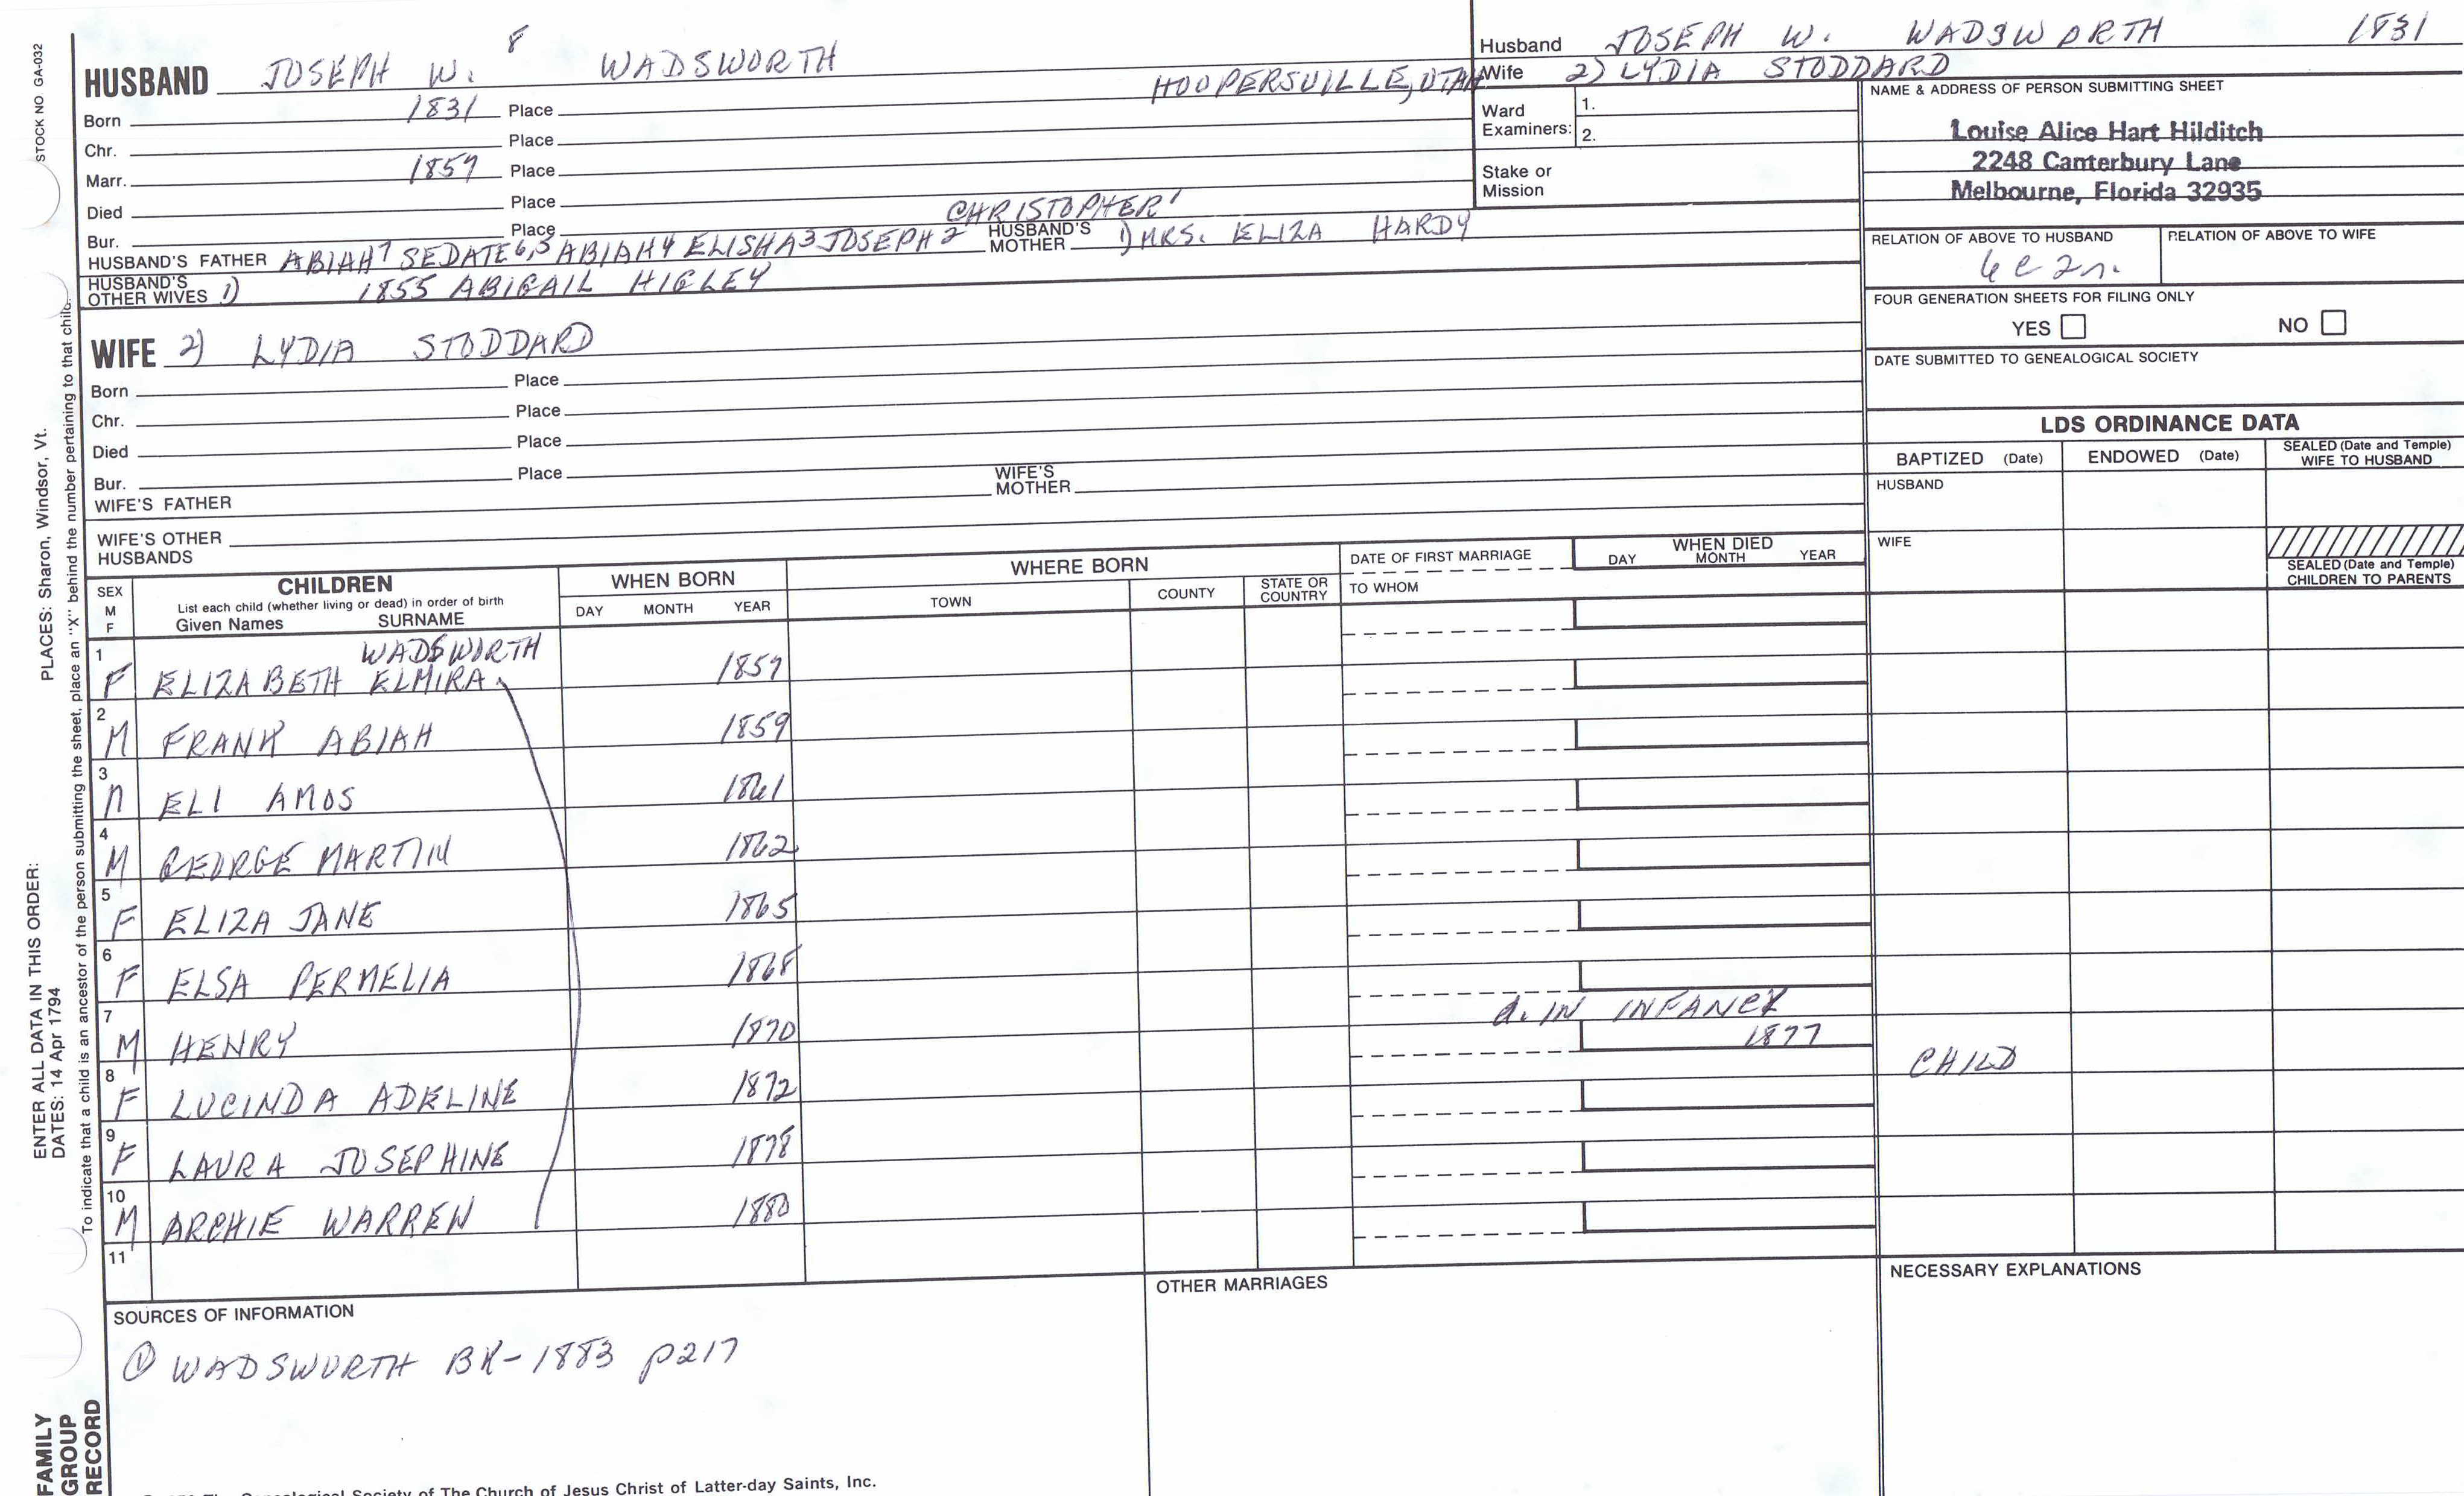 STOCK NO GA-032
HUSBAND JOSEPH W. 8 WADSWORTH
HOOPERSVILLE, UTAH
Born 1831 Place
Chr. Place
Marr. 1857 Place
Died Place
Bur. Place
CHRISTOPHER 1
HUSBAND'S FATHER ABIAH 7 SEDATE 6,5 ABIAH 4 ELISHA 3 JOSEPH 2 HUSBAND'S MOTHER 1) MRS. ELIZA HARDY
HUSBAND'S OTHER WIVES 1) 1855 ABIGAIL HIGLEY
WIFE 2) LYDIA STODDARD
Born Place
Chr. Place
Died Place
Bur. Place
WIFE'S FATHER WIFE'S MOTHER
WIFE'S OTHER HUSBANDS
Husband JOSEPH W. WADSWORTH 1831
Wife 2) LYDIA STODDARD
Ward Examiners: 1.
2.
Stake or Mission
NAME & ADDRESS OF PERSON SUBMITTING SHEET
Louise Alice Hart Hilditch
2248 Canterbury Lane
Melbourne, Florida 32935
RELATION OF ABOVE TO HUSBAND RELATION OF ABOVE TO WIFE
FOUR GENERATION SHEETS FOR FILING ONLY
YES NO
DATE SUBMITTED TO GENEALOGICAL SOCIETY
LDS ORDINANCE DATA
BAPTIZED (Date) ENDOWED (Date) SEALED (Date and Temple) WIFE TO HUSBAND
HUSBAND
WIFE
SEALED (Date and Temple) CHILDREN TO PARENTS
SEX M F
CHILDREN
List each child (whether living or dead) in order of birth
Given Names SURNAME
WHEN BORN
DAY MONTH YEAR
WHERE BORN
TOWN COUNTY STATE OR COUNTRY
DATE OF FIRST MARRIAGE
TO WHOM
WHEN DIED
DAY MONTH YEAR
WADSWORTH
1 F ELIZABETH ELMIRA 1857
2 M FRANK ABIAH 1859
3 M ELI AMOS 1861
4 M GEORGE MARTIN 1862
5 F ELIZA JANE 1865
6 F ELSA PERMELIA 1868
d. IN INFANCY
7 M HENRY 1870 1877 CHILD
8 F LUCINDA ADELINE 1872
9 F LAURA JOSEPHINE 1878
10 M ARCHIE WARREN 1880
11
SOURCES OF INFORMATION
① WADSWORTH BK-1883 p217
OTHER MARRIAGES
NECESSARY EXPLANATIONS
The Genealogical Society of The Church of Jesus Christ of Latter-day Saints, Inc.
ENTER ALL DATA IN THIS ORDER:
DATES: 14 Apr 1794
PLACES: Sharon, Windsor, Vt.
To indicate that a child is an ancestor of the person submitting the sheet, place an "X" behind the number pertaining to that child.
FAMILY
GROUP
RECORD